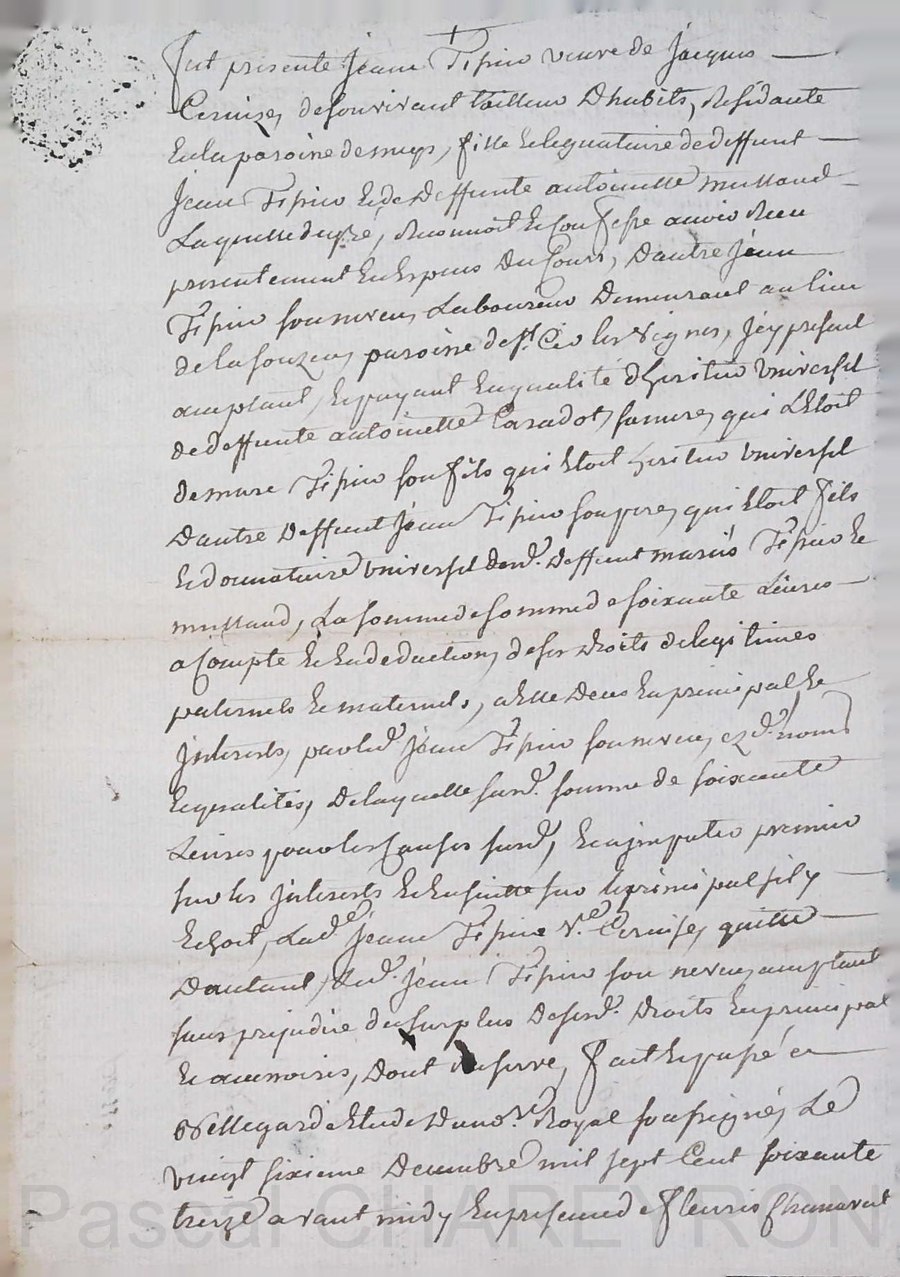 Fut presente Jeanne Tipino veuve de Jacques
Cerisier, de son vivant tailleur d'habits, Residante
En la paroine de mays, fille Et legataire de deffunt
Jean Tipino Et de deffunte antoinette
Laquelle de gré, Reconnoit Et Confesse avoir Reeu
presentement En Espesses du Cours, D'autre Jean
Tipino son neveu, Laboureur Demeurant au lieu
de la paroine de st. les vignes, Icy present
aceptant, Et payant En qualité d'heritier Universel
de deffunte antoinette sa mere, qui L'Etoit
de Tipino son fils qui Etoit heritier Universel
D'autre deffunt Jean Tipino son pere, qui Etoit fils
Et donnataire Universel desd. deffunt Tipino Et
La somme de somme de soixante Livres
a Compte Et En deduction, de ses Droits de legitimes
paternels Et maternels, a Elle Deus En principal Et
Interests, par led. Jean Tipino son neveu, ezd. noms
Et qualités, De laquelle susd. somme de soixante
Livres pour les Causes susd, premier
sur les Interests Et Ensuitte sur le principal sil y
Echoit, Lad. Jeanne Tipino Ve. Cerisier, quitte
D'autant, led. Jean Tipino son neveu, aceptant
sans prejudice du surplus De sesd. Droits En principal
Et accessoires, Dont reserve, fait Et passé a
Bellegarde Etude Du no.re Royal soussigné, Le
vingt sixieme Decembre mil sept Cent soixante
treize avant midy En presence de fleuris
Pascal CHAREYRON